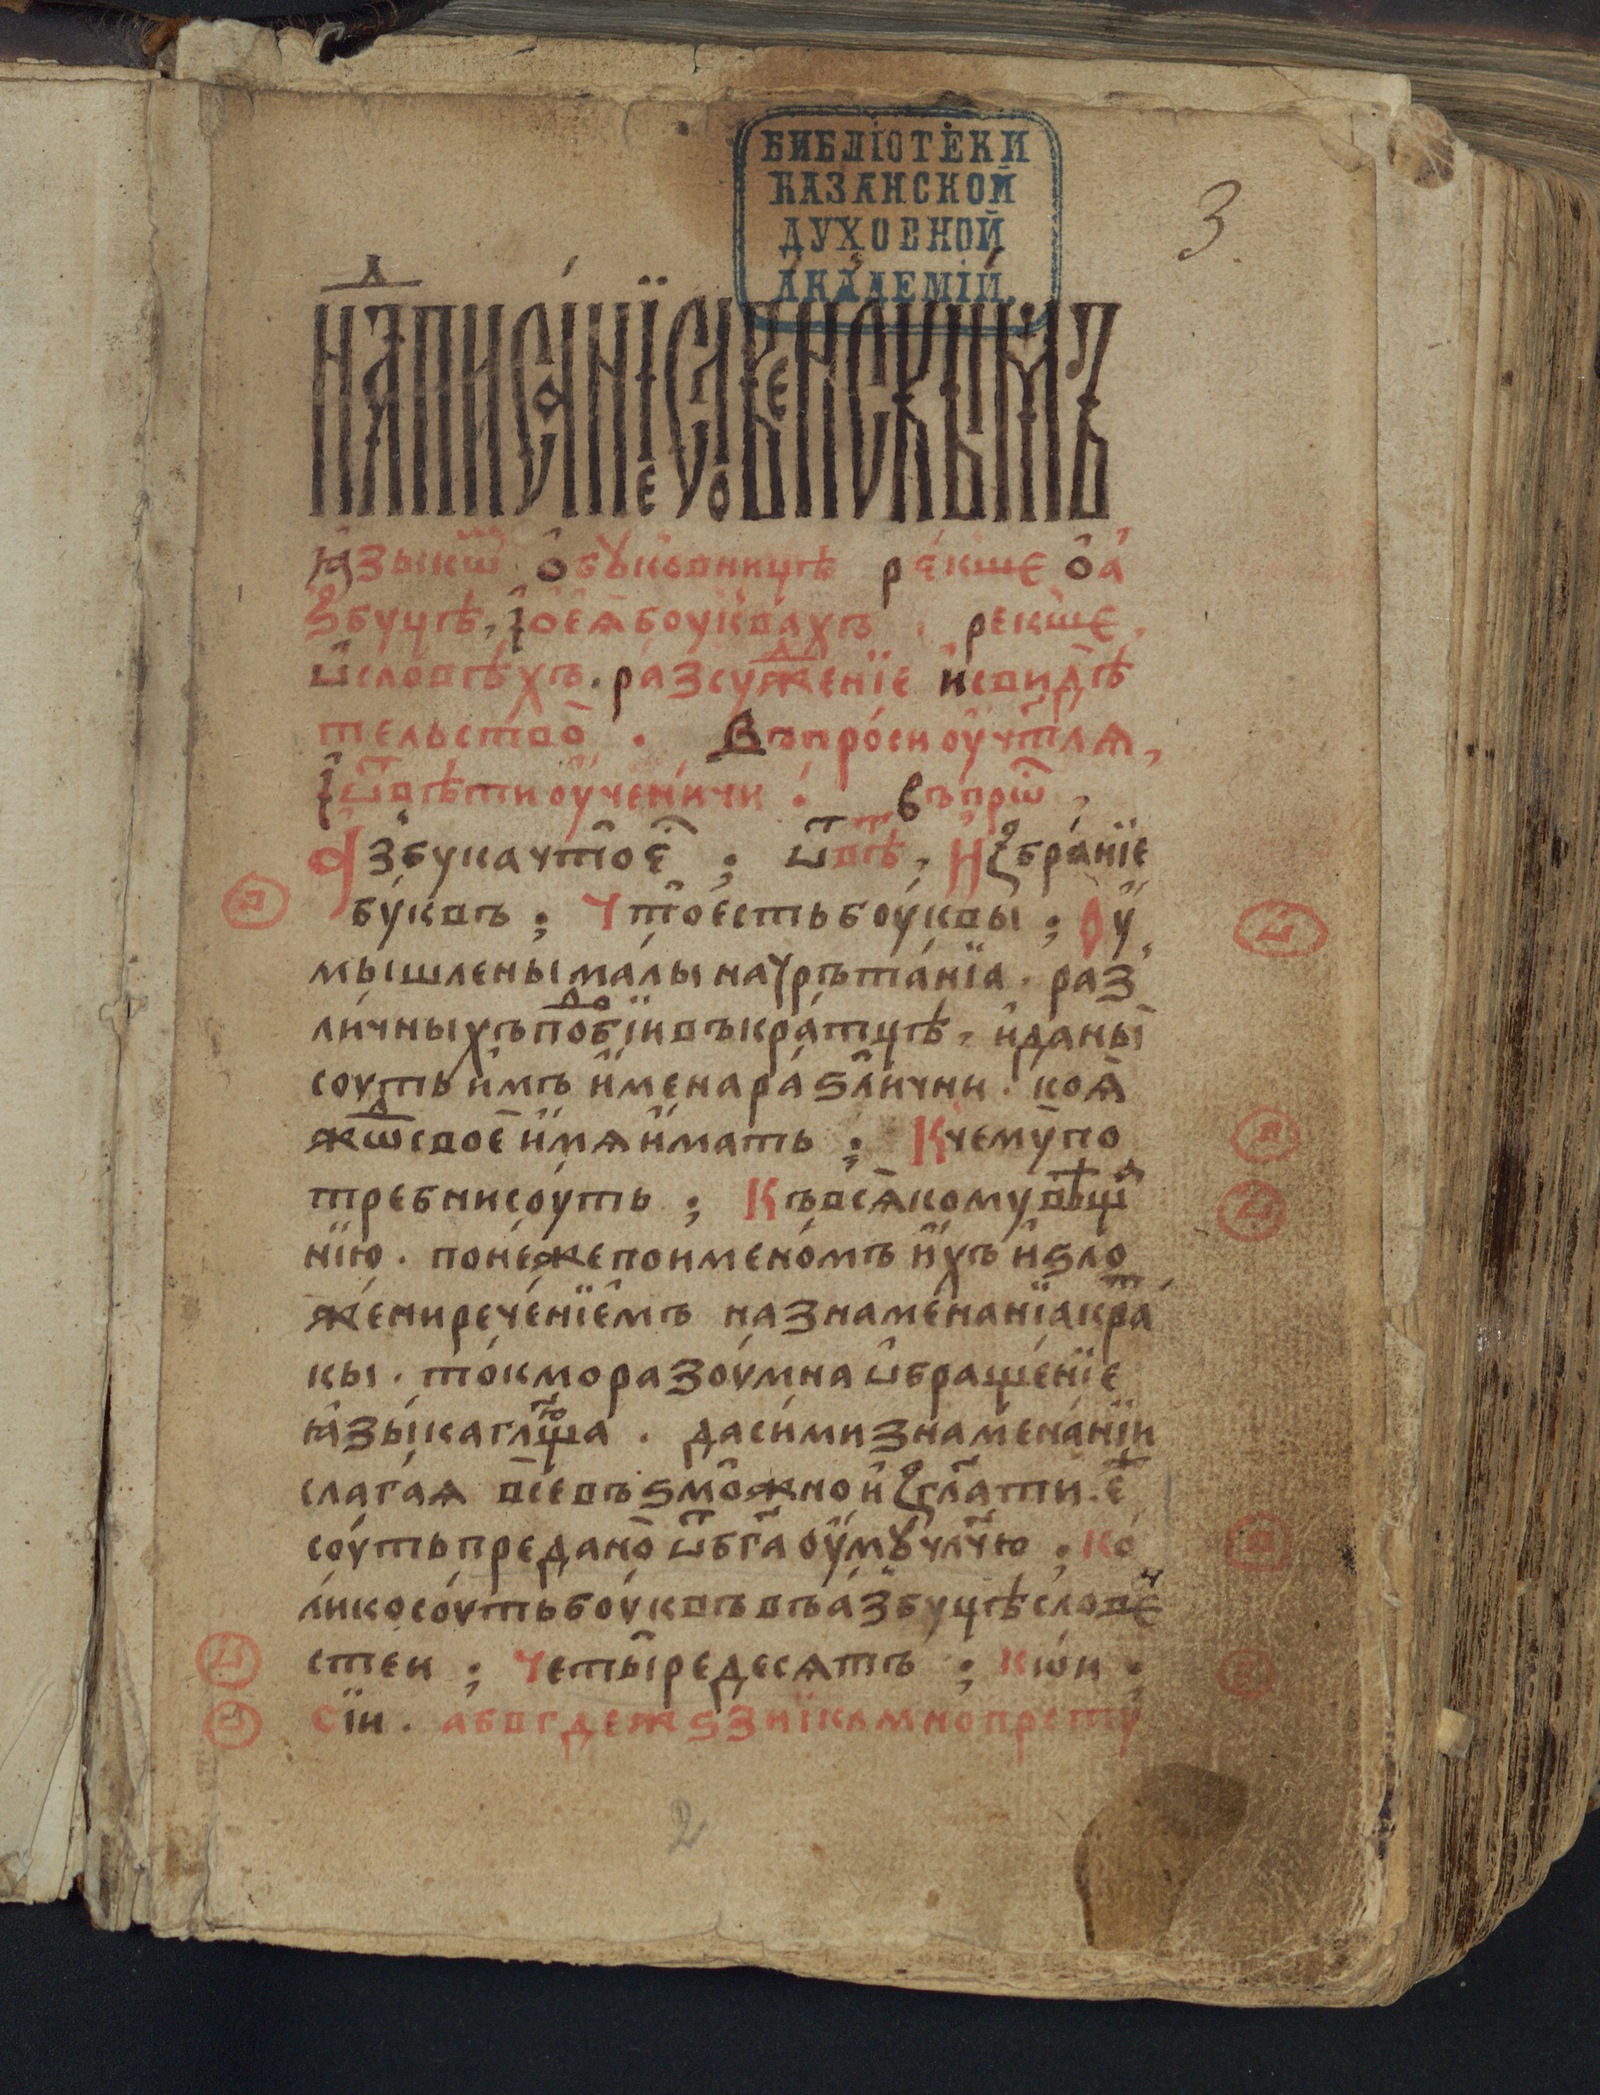 БИБЛІОТЕКИ
КАЗАНСКОЙ
ДУХОВНОЙ
АКАДЕМІЙ.
3.
Написаніе словенскимъ
ꙗзыкѡⷨ ѻбꙋковницѣ рекше ѻ а
збуцѣ, і ѻ еѧ боуквахъ. рекше,
ѡ словѣхъ. разсужⷣеніе и свидѣ
тельство. Въпроси оучтⷧѧ,
і ѿвѣти оученичи. въпрѡⷭ,
Азбука что еⷭ; ѿвѣⷮ, Избраніе
буквъ; Что есть боуквы; Оу
мышлены малы начрътаніа. раз
личныхъ поⷣбій въкратцѣ, и даны
соуть имъ имена различни. коѧ
жⷣѡ свое имѧ имать; К чему по
требни соуть; Къ всѧкому вѣщⷶ
нію. понеже по именомъ ихъ и ѕло
жени реченіемъ назнаменаніа краⷮ
кы. токмо разоумна ѡбращеніе
ꙗзыка глⷶщⷽа. да сими знаменаніи
слагаѧ все въѕможно изглⷶати. еⷤ
соуть предано ѿ бга оумꙋ члчю; Ко
лико соуть боуквъ въ азбуцѣ словеⷩ
стеи; Четыредесѧть; Кіи;
Сіи. а б в г д е ж ѕ з и і к л м н о п р с т у
2